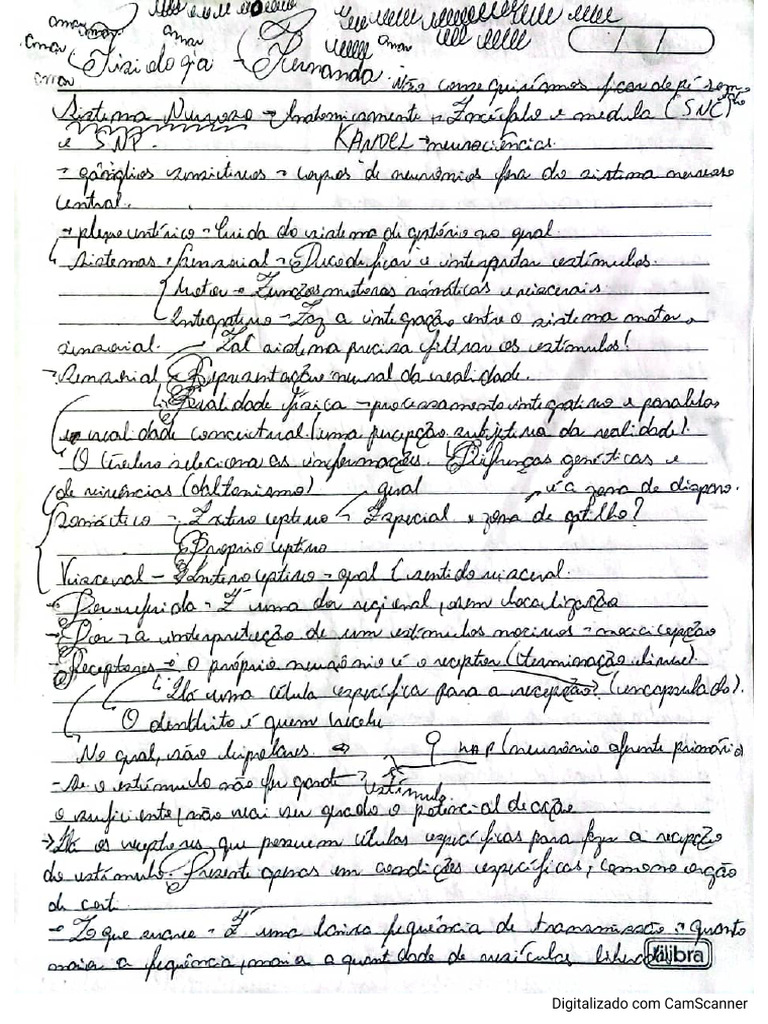 amar
amar
amar
amar
amar
Fisiologia - Fernanda.
Não conseguiríamos ficar de pé sem
Sistema Nervoso - Anatomicamente Encéfalo e medula (SNC)
e SNP. KANDEL → neurociências.
- gânglios sensitivos - corpos de neurônios fora do sistema nervoso
central.
→ plexo entérico - Cuida do sistema digestório no geral
Sistemas: Sensorial - Decodificar e interpretar estímulos.
Motor - Funções motoras somáticas e viscerais
Integrativo - Faz a integração entre o sistema motor e
sensorial. Tal sistema precisa filtrar os estímulos!
→ Sensorial - Representação neural da realidade.
Realidade física - processamento integrativo e paralelo
realidade conceitual (uma percepção subjetiva da realidade).
O cérebro seleciona as informações. Diferenças genéticas e
de vivências (daltonismo) geral é a zona de disparo.
Somático - Exteroceptivo Especial zona de gatilho?
Proprioceptivo
Visceral - Interoceptivo - geral (sentido visceral.
- Dor referida - É uma dor regional, sem localização
- Dor - a interpretação de um estímulos nocivos - nocicepção
- Receptores - O próprio neurônio é o receptor (terminação livre).
Há uma célula específica para a recepção? (encapsulado).
O dendrito é quem recebe
No geral, são bipolares. NAP (neurônio aferente primário)
- Se o estímulo não for grande estímulo.
o suficiente, não vai ser gerado o potencial de ação
→ Há os receptores que possuem células específicas para fazer a recepção
do estímulo. Presente apenas em condições específicas, como no órgão
de corti
- É uma baixa frequência de transmissão: quanto
maior a frequência, maior a quantidade de vesículas
tilibra
Digitalizado com CamScanner